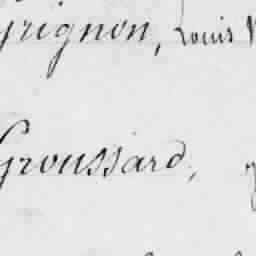 Grignon, Louis
Groussard,